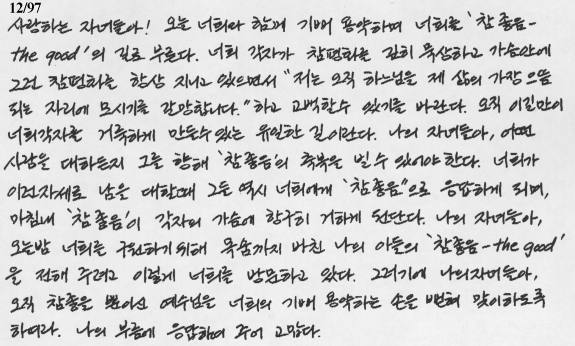 12/97
사랑하는 자녀들아! 오늘 너희와 함께 기뻐 용약하며 너희를 '참 좋음-
the good'의 길로 부른다. 너희 각자가 참평화를 깊이 묵상하고 가슴안에
그런 참평화를 항상 지니고 있으면서 "저는 오직 하느님을 제 삶의 가장 으뜸
되는 자리에 모시기를 갈망합니다."하고 고백할수 있기를 바란다. 오직 이길만이
너희각자를 거룩하게 만들수있는 유일한 길이란다. 나의 자녀들아, 어떤
사람을 대하든지 그를 향해 '참좋음'의 축복을 빌수 있어야 한다. 너희가
이런자세로 남을 대할때 그들 역시 너희에게 '참좋음"으로 응답하게 되며,
마침내 '참좋음'이 각자의 가슴에 항구히 거하게 된단다. 나의 자녀들아,
오늘밤 너희를 구원하기위해 목숨까지 바친 나의 아들의 '참좋음-the good'
을 전해 주려고 이렇게 너희를 방문하고 있다. 그러기에 나의자녀들아,
오직 참좋음 뿐이신 예수님을 너희의 기뻐 용약하는 손을 뻗혀 맞이하도록
하여라. 나의 부름에 응답하여 주어 고맙다.